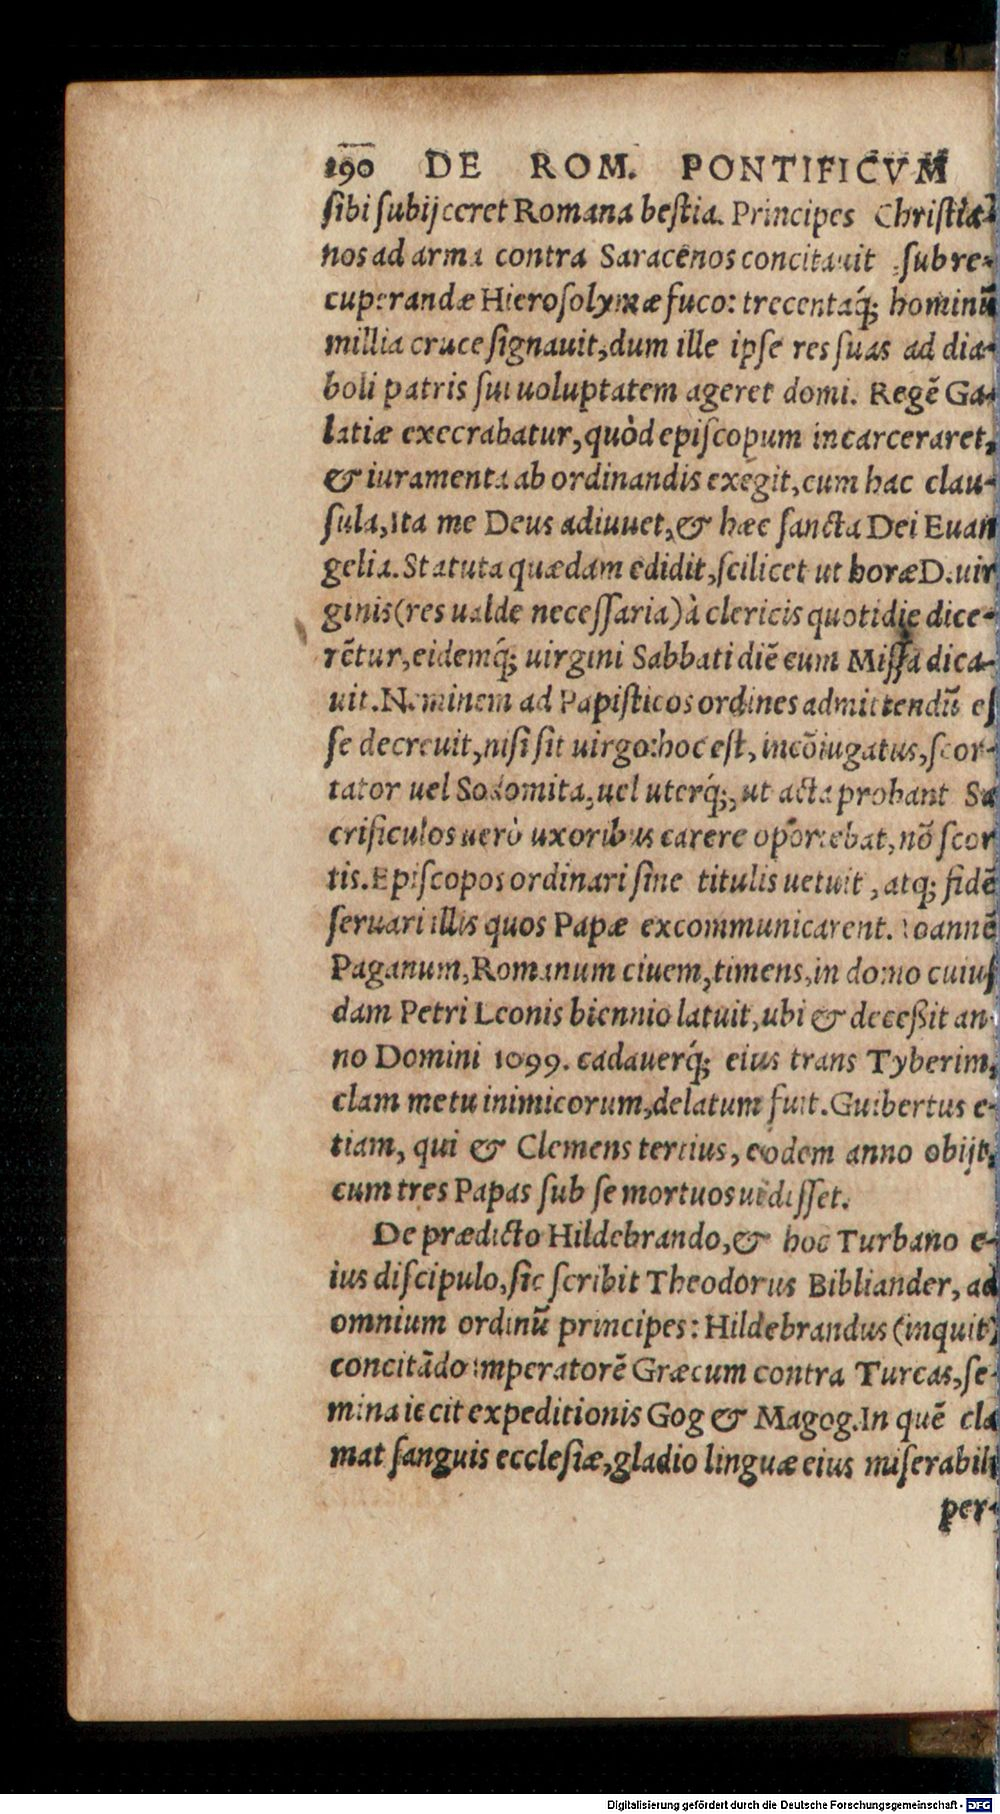 190 DE ROM. PONTIFICVM
ſibi ſubijceret Romana beſtia. Principes Chriſtia-
nos ad arma contra Saracenos concitauit, ſub re-
cuperandæ Hieroſolymæ fuco: trecentaq́; hominū
millia cruce ſignauit, dum ille ipſe res ſuas ad dia-
boli patris ſui uoluptatem ageret domi. Regē Ga-
latiæ execrabatur, quòd epiſcopum incarceraret,
& iuramenta ab ordinandis exegit, cum hac clau-
ſula, Ita me Deus adiuuet, & hæc ſancta Dei Euan
gelia. Statuta quædam edidit, ſcilicet ut horæ D. uir
ginis (res ualde neceſſaria) à clericis quotidie dice-
rētur, eidemq́; uirgini Sabbati diē cum Miſſa dica-
uit. Neminem ad Papiſticos ordines admittendū eſ
ſe decreuit, niſi ſit uirgo: hoc eſt, incōiugatus, ſcor-
tator uel Sodomita, uel uterq́;, ut acta probant Sa
crificulos uerò uxoribus carere oportebat, nō ſcor
tis. Epiſcopos ordinari ſine titulis uetuit, atq; fidē
ſeruari illis quos Papæ excommunicarent. Ioannē
Paganum, Romanum ciuem, timens, in domo cuiuſ
dam Petri Leonis biennio latuit, ubi & deceßit an-
no Domini 1099. cadauerq́; eius trans Tyberim,
clam metu inimicorum, delatum fuit. Guibertus e-
tiam, qui & Clemens tertius, eodem anno obijt,
cum tres Papas ſub ſe mortuos uidiſſet.
De prædicto Hildebrando, & hoc Turbano e-
ius diſcipulo, ſic ſcribit Theodorus Bibliander, ad
omnium ordinū principes: Hildebrandus (inquit)
concitādo imperatorē Græcum contra Turcas, ſe-
mina iecit expeditionis Gog & Magog. In quē cla
mat ſanguis eccleſiæ, gladio linguæ eius miſerabili
per-
Digitalisierung gefördert durch die Deutsche Forschungsgemeinschaft - DFG